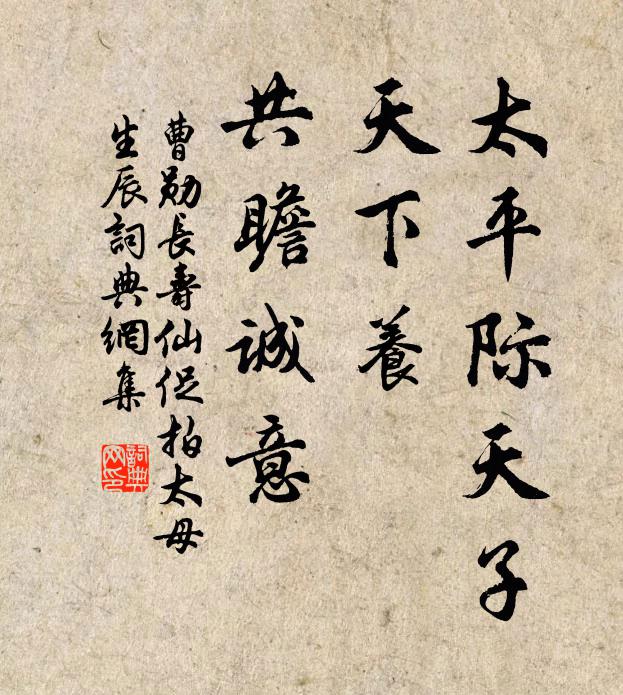 太平际天子
天下養
共瞻誠意
曹勛長壽仙促拍太母
生辰詞典網集
詞典網印